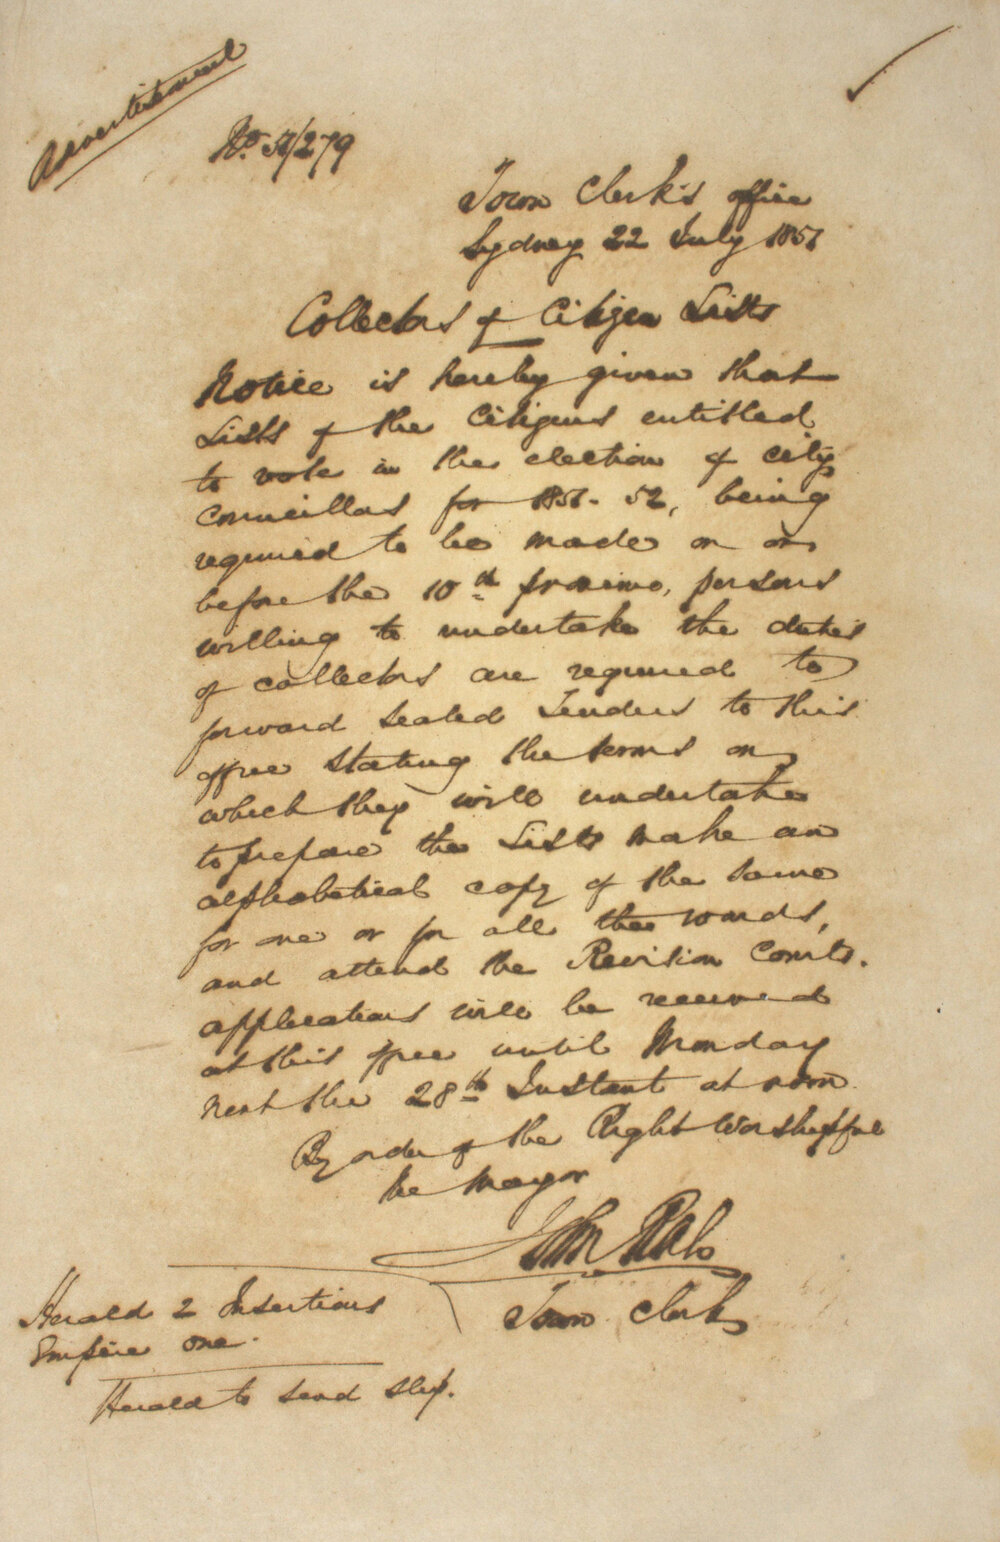 Advertisement
No. 51/279
Town Clerk's office
Sydney 22 July 1851
Collectors of Citizen Lists
Notice is hereby given that
Lists of the Citizens entitled
to vote in the election of city
Councillors for 1851-52, being
required to be made on or
before the 10th proximo, persons
willing to undertake the duties
of collectors are required to
forward sealed Tenders to this
office stating the terms on
which they will undertake
to prepare the Lists make an
alphabetical copy of the same
for one or for all the wards,
and attend the Revision Courts.
applications will be received
at this office until Monday
next the 28th Instant at noon
By order of the Right Worshipful
the Mayor
John Rae
Town Clerk
Herald 2 Insertions
Empire one.
Herald to send slip.